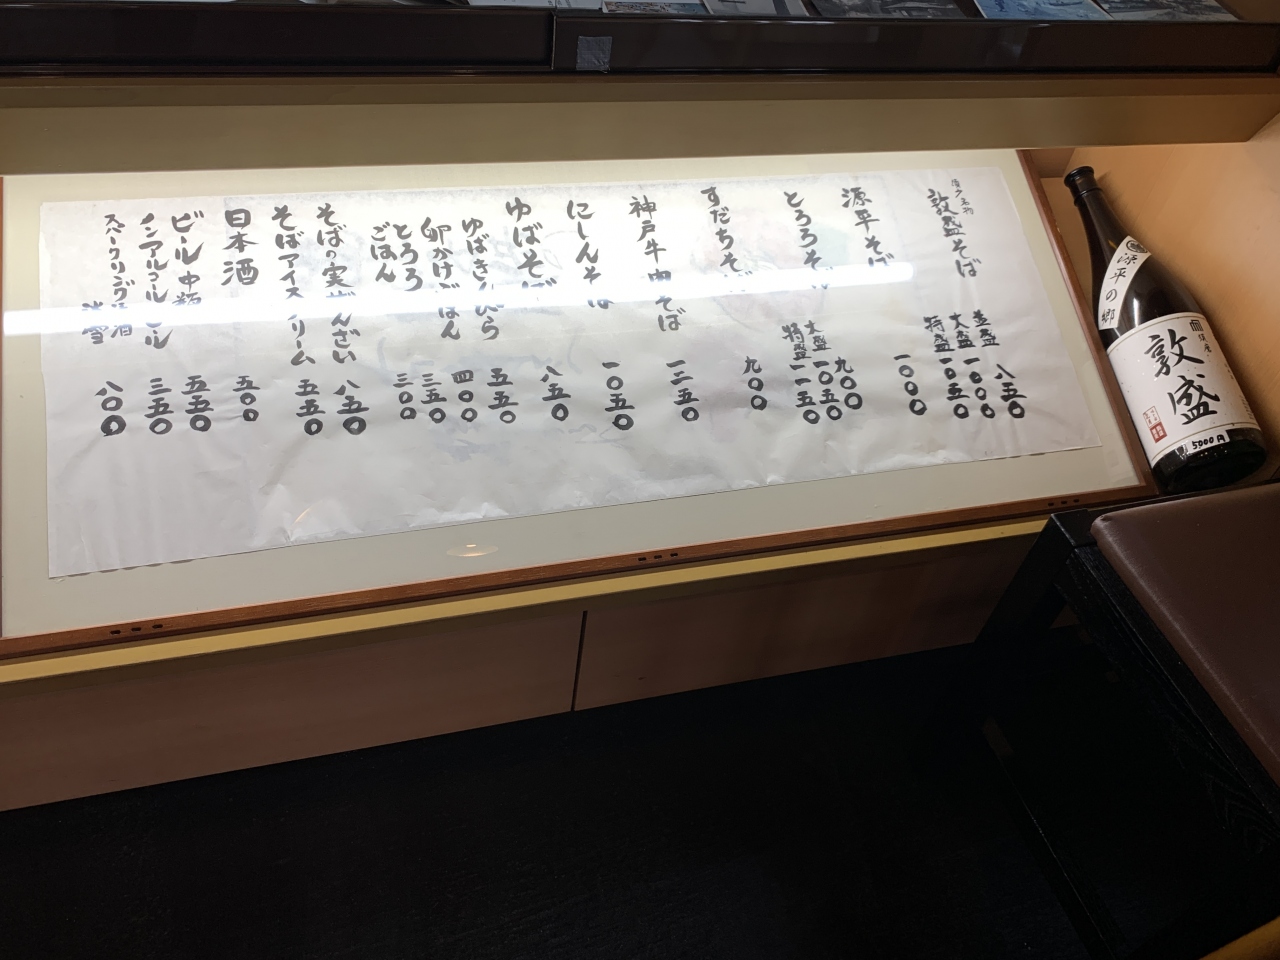 須磨名物
敦盛そば
並盛 八五〇
大盛 一〇〇〇
特盛 一〇五〇
源平そば 一〇〇〇
とろろそば 九〇〇
大盛 一〇五〇
特盛 一一五〇
すだちそば 九〇〇
神戸牛肉そば 一二五〇
にしんそば 一〇五〇
ゆばそば 八五〇
ゆばきんぴら 五五〇
卵かけごはん 四〇〇
とろろ 三五〇
ごはん 三〇〇
そばの実ぜんざい 八五〇
そばアイスクリーム 五五〇
日本酒 五〇〇
ビール中瓶 五五〇
ノンアルコールビール 三五〇
スパークリング清酒
淡雪 八〇〇
源平の郷
須磨
敦盛
5000円